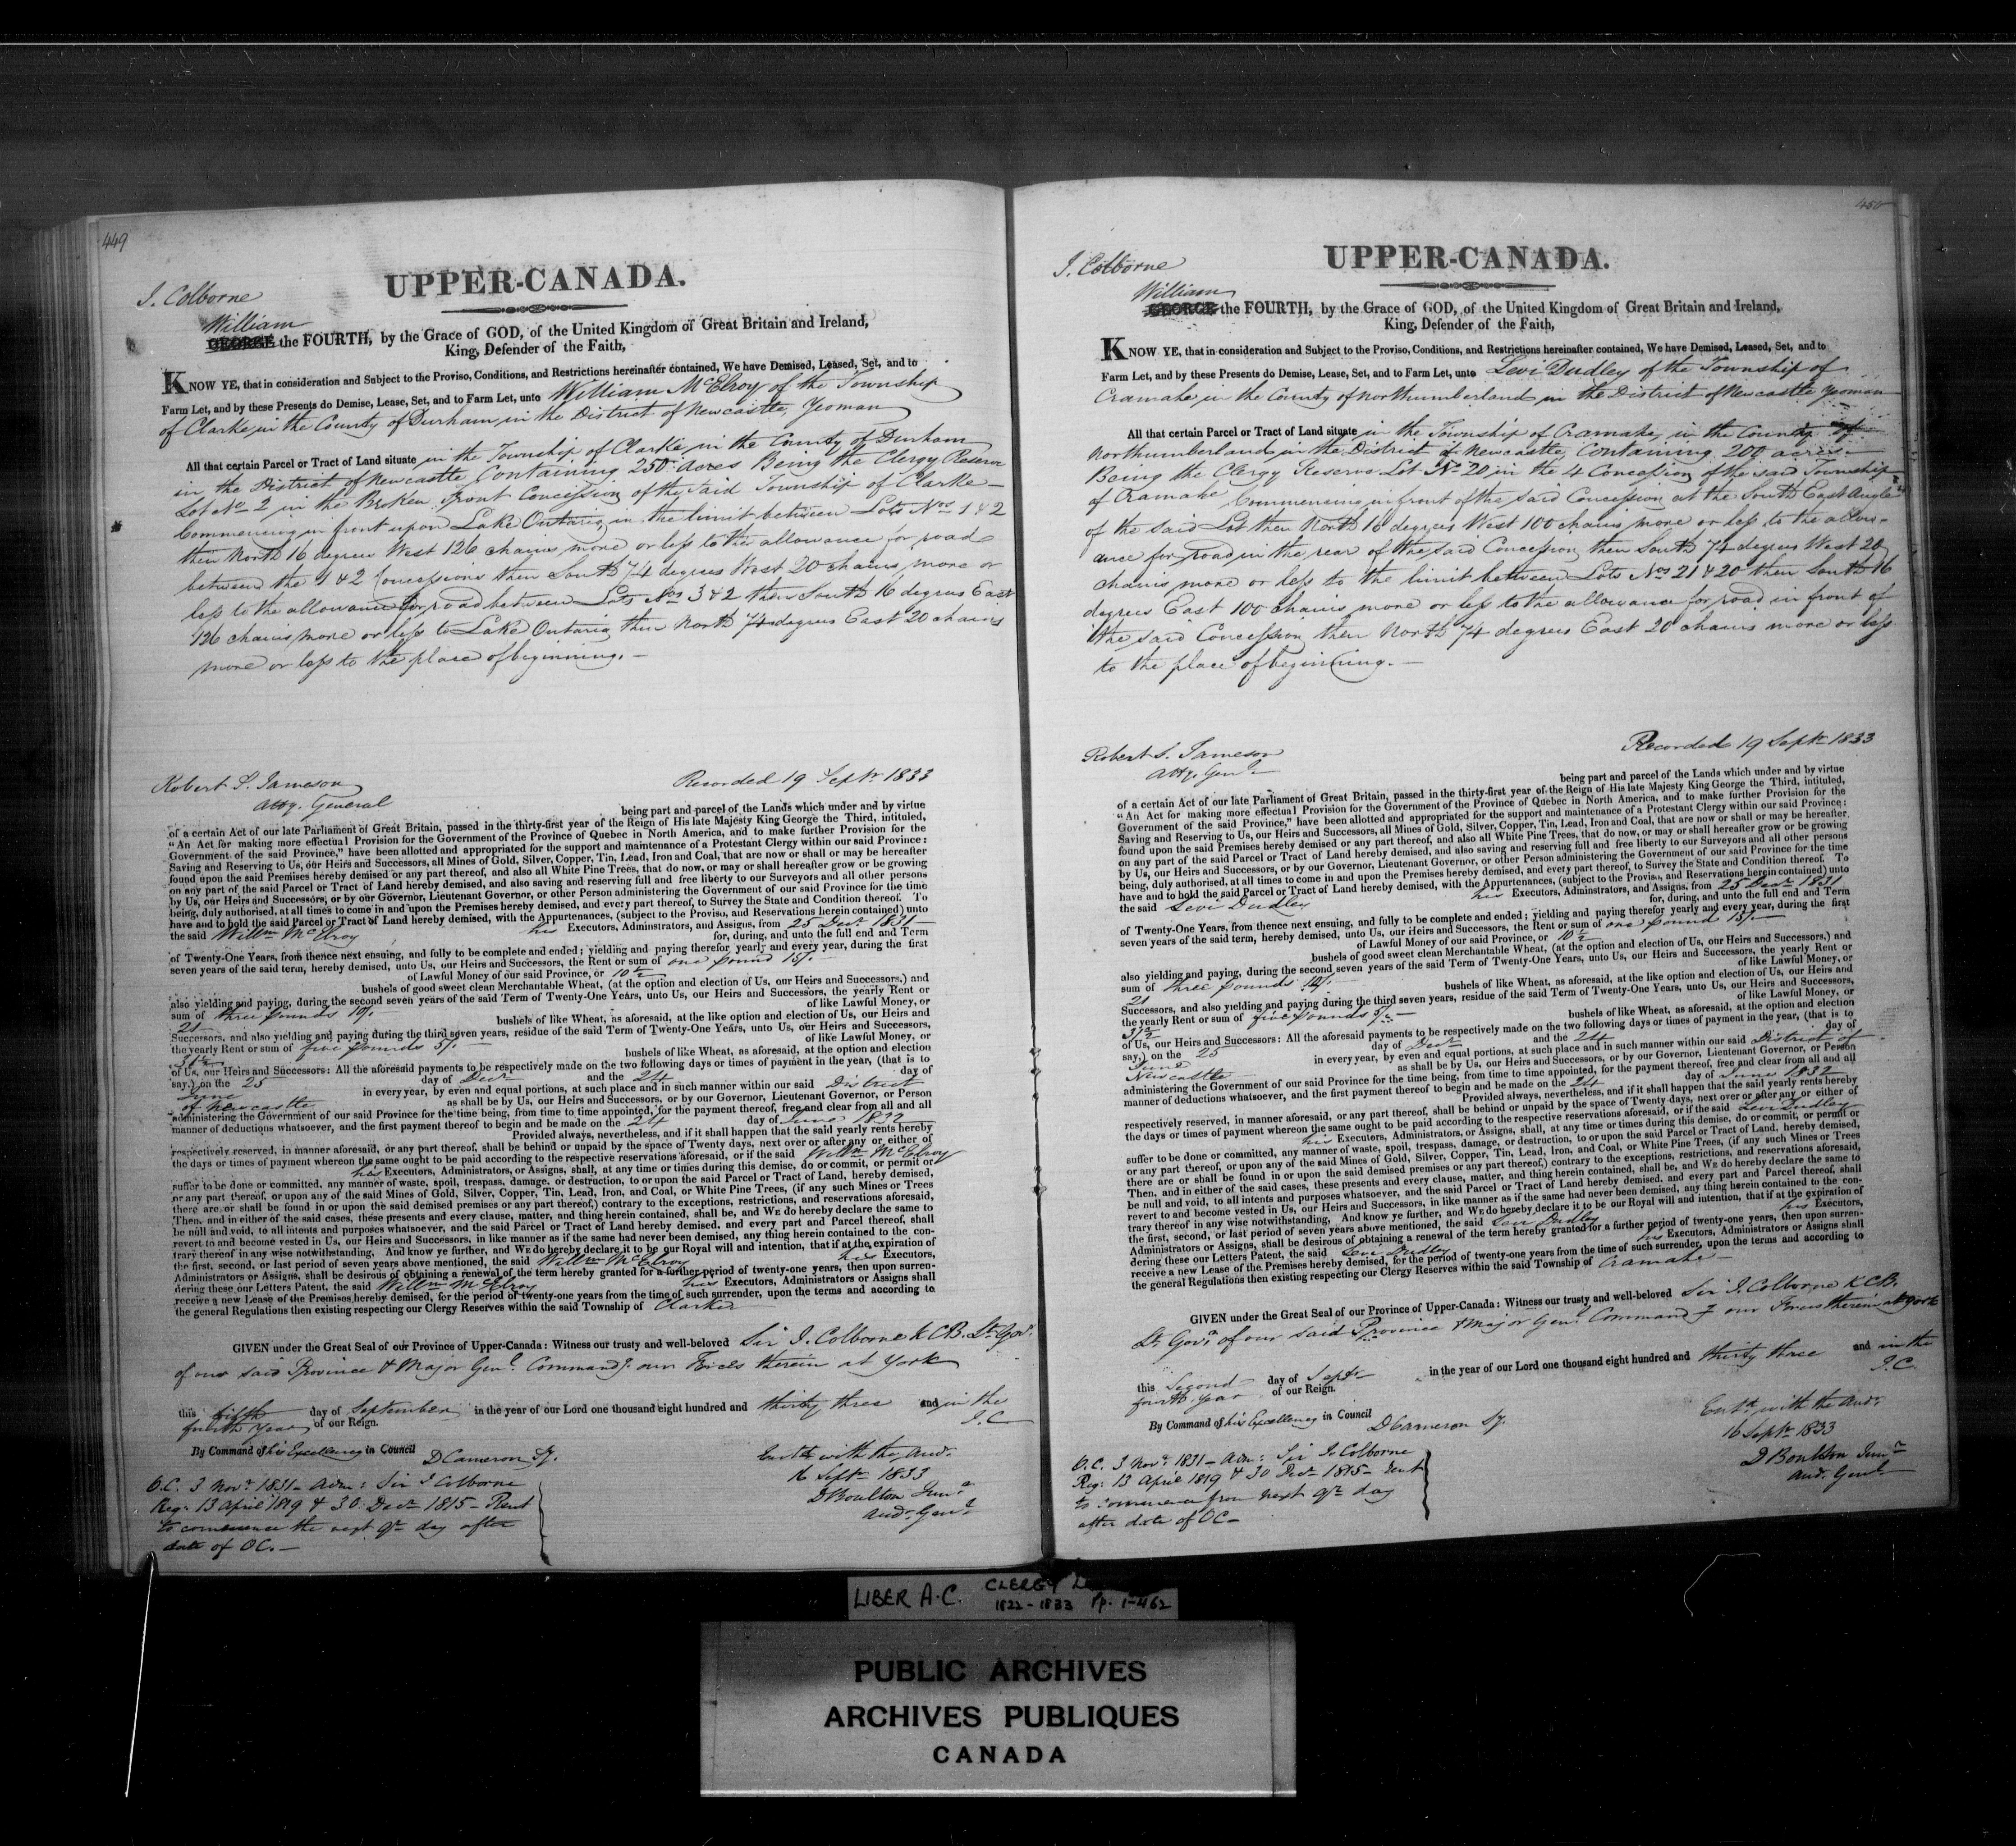 449
UPPER-CANADA.
J. Colborne
William
GEORGE the FOURTH, by the Grace of GOD, of the United Kingdom of Great Britain and Ireland,
King, Defender of the Faith,
KNOW YE, that in consideration and Subject to the Proviso, Conditions, and Restrictions hereinafter contained, We have Demised, Leased, Set, and to
Farm Let, and by these Presents do Demise, Lease, Set, and to Farm Let, unto William McElroy of the Township
of Clarke, in the County of Durham in the District of Newcastle, Yeoman
All that certain Parcel or Tract of Land situate in the Township of Clarke in the County of Durham
in the District of Newcastle, Containing 250 acres Being the Clergy Reserve
Lot No 2 in the Broken Front Concession of the said Township of Clarke —
Commencing in front upon Lake Ontario, in the limit between Lots Nos 1 & 2
then North 16 degrees West 126 chains more or less to the allowance for road
between the 1 & 2 Concessions then South 74 degrees West 20 chains more or
less to the allowance for road between Lots Nos 3 & 2 then South 16 degrees East
126 chains more or less to Lake Ontario then North 74 degrees East 20 chains
more or less to the place of beginning. —
Robert S. Jameson
Atty. General
Recorded 19 Septr 1833
being part and parcel of the Lands which under and by virtue
of a certain Act of our late Parliament of Great Britain, passed in the thirty-first year of the Reign of His late Majesty King George the Third, intituled,
"An Act for making more effectual Provision for the Government of the Province of Quebec in North America, and to make further Provision for the
Government of the said Province," have been allotted and appropriated for the support and maintenance of a Protestant Clergy within our said Province:
Saving and Reserving to Us, our Heirs and Successors, all Mines of Gold, Silver, Copper, Tin, Lead, Iron and Coal, that are now or shall or may be hereafter
found upon the said Premises hereby demised or any part thereof, and also all White Pine Trees, that do now, or may or shall hereafter grow or be growing
on any part of the said Parcel or Tract of Land hereby demised, and also saving and reserving full and free liberty to our Surveyors and all other persons
by Us, our Heirs and Successors, or by our Governor, Lieutenant Governor, or other Person administering the Government of our said Province for the time
being, duly authorised, at all times to come in and upon the Premises hereby demised, and every part thereof, to Survey the State and Condition thereof. To
have and to hold the said Parcel or Tract of Land hereby demised, with the Appurtenances, (subject to the Proviso, and Reservations herein contained) unto
the said Willm McElroy his Executors, Adminstrators, and Assigns, from 25 Decr 1831
for, during, and unto the full end and Term
of Twenty-One Years, from thence next ensuing, and fully to be complete and ended; yielding and paying therefor yearly and every year, during the first
seven years of the said term, hereby demised, unto Us, our Heirs and Successors, the Rent or sum of one pound 15/. —
of Lawful Money of our said Province, or 10½
bushels of good sweet clean Merchantable Wheat, (at the option and election of Us, our Heirs and Successors,) and
also yielding and paying, during the second seven years of the said Term of Twenty-One Years, unto Us, our Heirs and Successors, the yearly Rent or
sum of three pounds 10/. of like Lawful Money, or
21 bushels of like Wheat, as aforesaid, at the like option and election of Us, our Heirs and
Successors, and also yielding and paying during the third seven years, residue of the said Term of Twenty-One Years, unto Us, our Heirs and Successors,
the yearly Rent or sum of five pounds 5/. — of like Lawful Money, or
31½ bushels of like Wheat, as aforesaid, at the option and election
of Us, our Heirs and Successors: All the aforesaid payments to be respectively made on the two following days or times of payment in the year, (that is to
say,) on the 25 day of Decr and the 24 day of
June in every year, by even and equal portions, at such place and in such manner within our said District
of Newcastle as shall be by Us, our Heirs and Successors, or by our Governor, Lieutenant Governor, or Person
administering the Government of our said Province for the time being, from time to time appointed, for the payment thereof, free and clear from all and all
manner of deductions whatsoever, and the first payment thereof to begin and be made on the 24 day of June 1832
Provided always, nevertheless, and if it shall happen that the said yearly rents hereby
respectively reserved, in manner aforesaid, or any part thereof, shall be behind or unpaid by the space of Twenty days, next over or after any or either of
the days or times of payment whereon the same ought to be paid according to the respective reservations aforesaid, or if the said Willm McElroy
his Executors, Administrators, or Assigns, shall, at any time or times during this demise, do or commit, or permit or
suffer to be done or committed, any manner of waste, spoil, trespass, damage, or destruction, to or upon the said Parcel or Tract of Land, hereby demised,
or any part thereof, or upon any of the said Mines of Gold, Silver, Copper, Tin, Lead, Iron, and Coal, or White Pine Trees, (if any such Mines or Trees
there are or shall be found in or upon the said demised premises or any part thereof,) contrary to the exceptions, restrictions, and reservations aforesaid,
Then, and in either of the said cases, these presents and every clause, matter, and thing herein contained, shall be, and WE do hereby declare the same to
be null and void, to all intents and purposes whatsoever, and the said Parcel or Tract of Land hereby demised, and every part and Parcel thereof, shall
revert to and become vested in Us, our Heirs and Successors, in like manner as if the same had never been demised, any thing herein contained to the con-
trary thereof in any wise notwithstanding, And know ye further, and WE do hereby declare it to be our Royal will and intention, that if at the expiration of
the first, second, or last period of seven years above mentioned, the said Willm McElroy his Executors,
Administrators or Assigns, shall be desirous of obtaining a renewal of the term hereby granted for a further period of twenty-one years, then upon surren-
dering these our Letters Patent, the said Willm McElroy his Executors, Administrators or Assigns shall
receive a new Lease of the Premises hereby demised, for the period of twenty-one years from the time of such surrender, upon the terms and according to
the general Regulations then existing respecting our Clergy Reserves within the said Township of Clarke
GIVEN under the Great Seal of our Province of Upper-Canada: Witness our trusty and well-beloved Sir J. Colborne KCB. Lt. Govr
of our said Province & Major Genl Commandg. our Forces therein at York
this fifth day of September in the year of our Lord one thousand eight hundred and thirty three and in the
fourth Year of our Reign. J.C
By Command of his Excellency in Council
D Cameron Sy.
Entd with the Audr
16 Septr 1833
D Boulton Junr
Audr Genl
O.C. 3 Novr 1831 — Adm: Sir J Colborne
Reg: 13 April 1819 & 30 Decr 1815 — Rent
to commence the next qr day after
date of OC. —
450
UPPER-CANADA.
J. Colborne
William
GEORGE the FOURTH, by the Grace of GOD, of the United Kingdom of Great Britain and Ireland,
King, Defender of the Faith,
KNOW YE, that in consideration and Subject to the Proviso, Conditions, and Restrictions hereinafter contained, We have Demised, Leased, Set, and to
Farm Let, and by these Presents do Demise, Lease, Set, and to Farm Let, unto Levi Dudley of the Township of
Cramahe in the County of Northumberland in the District of Newcastle Yeoman
All that certain Parcel or Tract of Land situate in the Township of Cramahe, in the County of
Northumberland in the District of Newcastle, Containing 200 acres —
Being the Clergy Reserve Lot No 20 in the 4 Concession of the said Township
of Cramahe Commencing in front of the said Concession at the South East Angle
of the said Lot then North 16 degrees West 100 chains more or less to the allow-
ance for road in the rear of the said Concession, then South 74 degrees West 20
chains more or less to the limit between Lots Nos 21 & 20 then South 16
degrees East 100 chains more or less to the allowance for road in front of
the said Concession, then North 74 degrees East 20 chains more or less
to the place of beginning. —
Robert S. Jameson
Atty. Genl
Recorded 19 Septr 1833
being part and parcel of the Lands which under and by virtue
of a certain Act of our late Parliament of Great Britain, passed in the thirty-first year of the Reign of His late Majesty King George the Third, intituled,
"An Act for making more effectual Provision for the Government of the Province of Quebec in North America, and to make further Provision for the
Government of the said Province," have been allotted and appropriated for the support and maintenance of a Protestant Clergy within our said Province:
Saving and Reserving to Us, our Heirs and Successors, all Mines of Gold, Silver, Copper, Tin, Lead, Iron and Coal, that are now or shall or may be hereafter
found upon the said Premises hereby demised or any part thereof, and also all White Pine Trees, that do now, or may or shall hereafter grow or be growing
on any part of the said Parcel or Tract of Land hereby demised, and also saving and reserving full and free liberty to our Surveyors and all other persons
by Us, our Heirs and Successors, or by our Governor, Lieutenant Governor, or other Person administering the Government of our said Province for the time
being, duly authorised, at all times to come in and upon the Premises hereby demised, and every part thereof, to Survey the State and Condition thereof. To
have and to hold the said Parcel or Tract of Land hereby demised, with the Appurtenances, (subject to the Proviso, and Reservations herein contained) unto
the said Levi Dudley his Executors, Adminstrators, and Assigns, from 25 Decr 1831
for, during, and unto the full end and Term
of Twenty-One Years, from thence next ensuing, and fully to be complete and ended; yielding and paying therefor yearly and every year, during the first
seven years of the said term, hereby demised, unto Us, our Heirs and Successors, the Rent or sum of one pound 15/. —
of Lawful Money of our said Province, or 10½
bushels of good sweet clean Merchantable Wheat, (at the option and election of Us, our Heirs and Successors,) and
also yielding and paying, during the second seven years of the said Term of Twenty-One Years, unto Us, our Heirs and Successors, the yearly Rent or
sum of three pounds 10/. of like Lawful Money, or
21 bushels of like Wheat, as aforesaid, at the like option and election of Us, our Heirs and
Successors, and also yielding and paying during the third seven years, residue of the said Term of Twenty-One Years, unto Us, our Heirs and Successors,
the yearly Rent or sum of five pounds 5/. — of like Lawful Money, or
31½ bushels of like Wheat, as aforesaid, at the option and election
of Us, our Heirs and Successors: All the aforesaid payments to be respectively made on the two following days or times of payment in the year, (that is to
say,) on the 25 day of Decr and the 24 day of
June in every year, by even and equal portions, at such place and in such manner within our said District of
Newcastle as shall be by Us, our Heirs and Successors, or by our Governor, Lieutenant Governor, or Person
administering the Government of our said Province for the time being, from time to time appointed, for the payment thereof, free and clear from all and all
manner of deductions whatsoever, and the first payment thereof to begin and be made on the 24 day of June 1832
Provided always, nevertheless, and if it shall happen that the said yearly rents hereby
respectively reserved, in manner aforesaid, or any part thereof, shall be behind or unpaid by the space of Twenty days, next over or after any or either of
the days or times of payment whereon the same ought to be paid according to the respective reservations aforesaid, or if the said Levi Dudley
his Executors, Administrators, or Assigns, shall, at any time or times during this demise, do or commit, or permit or
suffer to be done or committed, any manner of waste, spoil, trespass, damage, or destruction, to or upon the said Parcel or Tract of Land, hereby demised,
or any part thereof, or upon any of the said Mines of Gold, Silver, Copper, Tin, Lead, Iron, and Coal, or White Pine Trees, (if any such Mines or Trees
there are or shall be found in or upon the said demised premises or any part thereof,) contrary to the exceptions, restrictions, and reservations aforesaid,
Then, and in either of the said cases, these presents and every clause, matter, and thing herein contained, shall be, and WE do hereby declare the same to
be null and void, to all intents and purposes whatsoever, and the said Parcel or Tract of Land hereby demised, and every part and Parcel thereof, shall
revert to and become vested in Us, our Heirs and Successors, in like manner as if the same had never been demised, any thing herein contained to the con-
trary thereof in any wise notwithstanding, And know ye further, and WE do hereby declare it to be our Royal will and intention, that if at the expiration of
the first, second, or last period of seven years above mentioned, the said Levi Dudley his Executors,
Administrators or Assigns, shall be desirous of obtaining a renewal of the term hereby granted for a further period of twenty-one years, then upon surren-
dering these our Letters Patent, the said Levi Dudley his Executors, Administrators or Assigns shall
receive a new Lease of the Premises hereby demised, for the period of twenty-one years from the time of such surrender, upon the terms and according to
the general Regulations then existing respecting our Clergy Reserves within the said Township of Cramahe —
GIVEN under the Great Seal of our Province of Upper-Canada: Witness our trusty and well-beloved Sir J. Colborne KCB.
Lt. Govr of our said Province & Major Genl Commandg our Forces therein at York
this Second day of Septr — in the year of our Lord one thousand eight hundred and thirty three and in the
fourth year of our Reign. J.C.
By Command of his Excellency in Council
D Cameron Sy.
Entd with the Audr
16 Septr 1833
D Boulton Junr
Audr Genl
O.C. 3 Novr 1831 — Adm: Sir J. Colborne
Reg: 13 April 1819 & 30 Decr 1815 — Rent
to commence from next qr day
after date of OC —
LIBER A.C. CLERGY
1822-1833 Pp. 1-462
PUBLIC ARCHIVES
ARCHIVES PUBLIQUES
CANADA